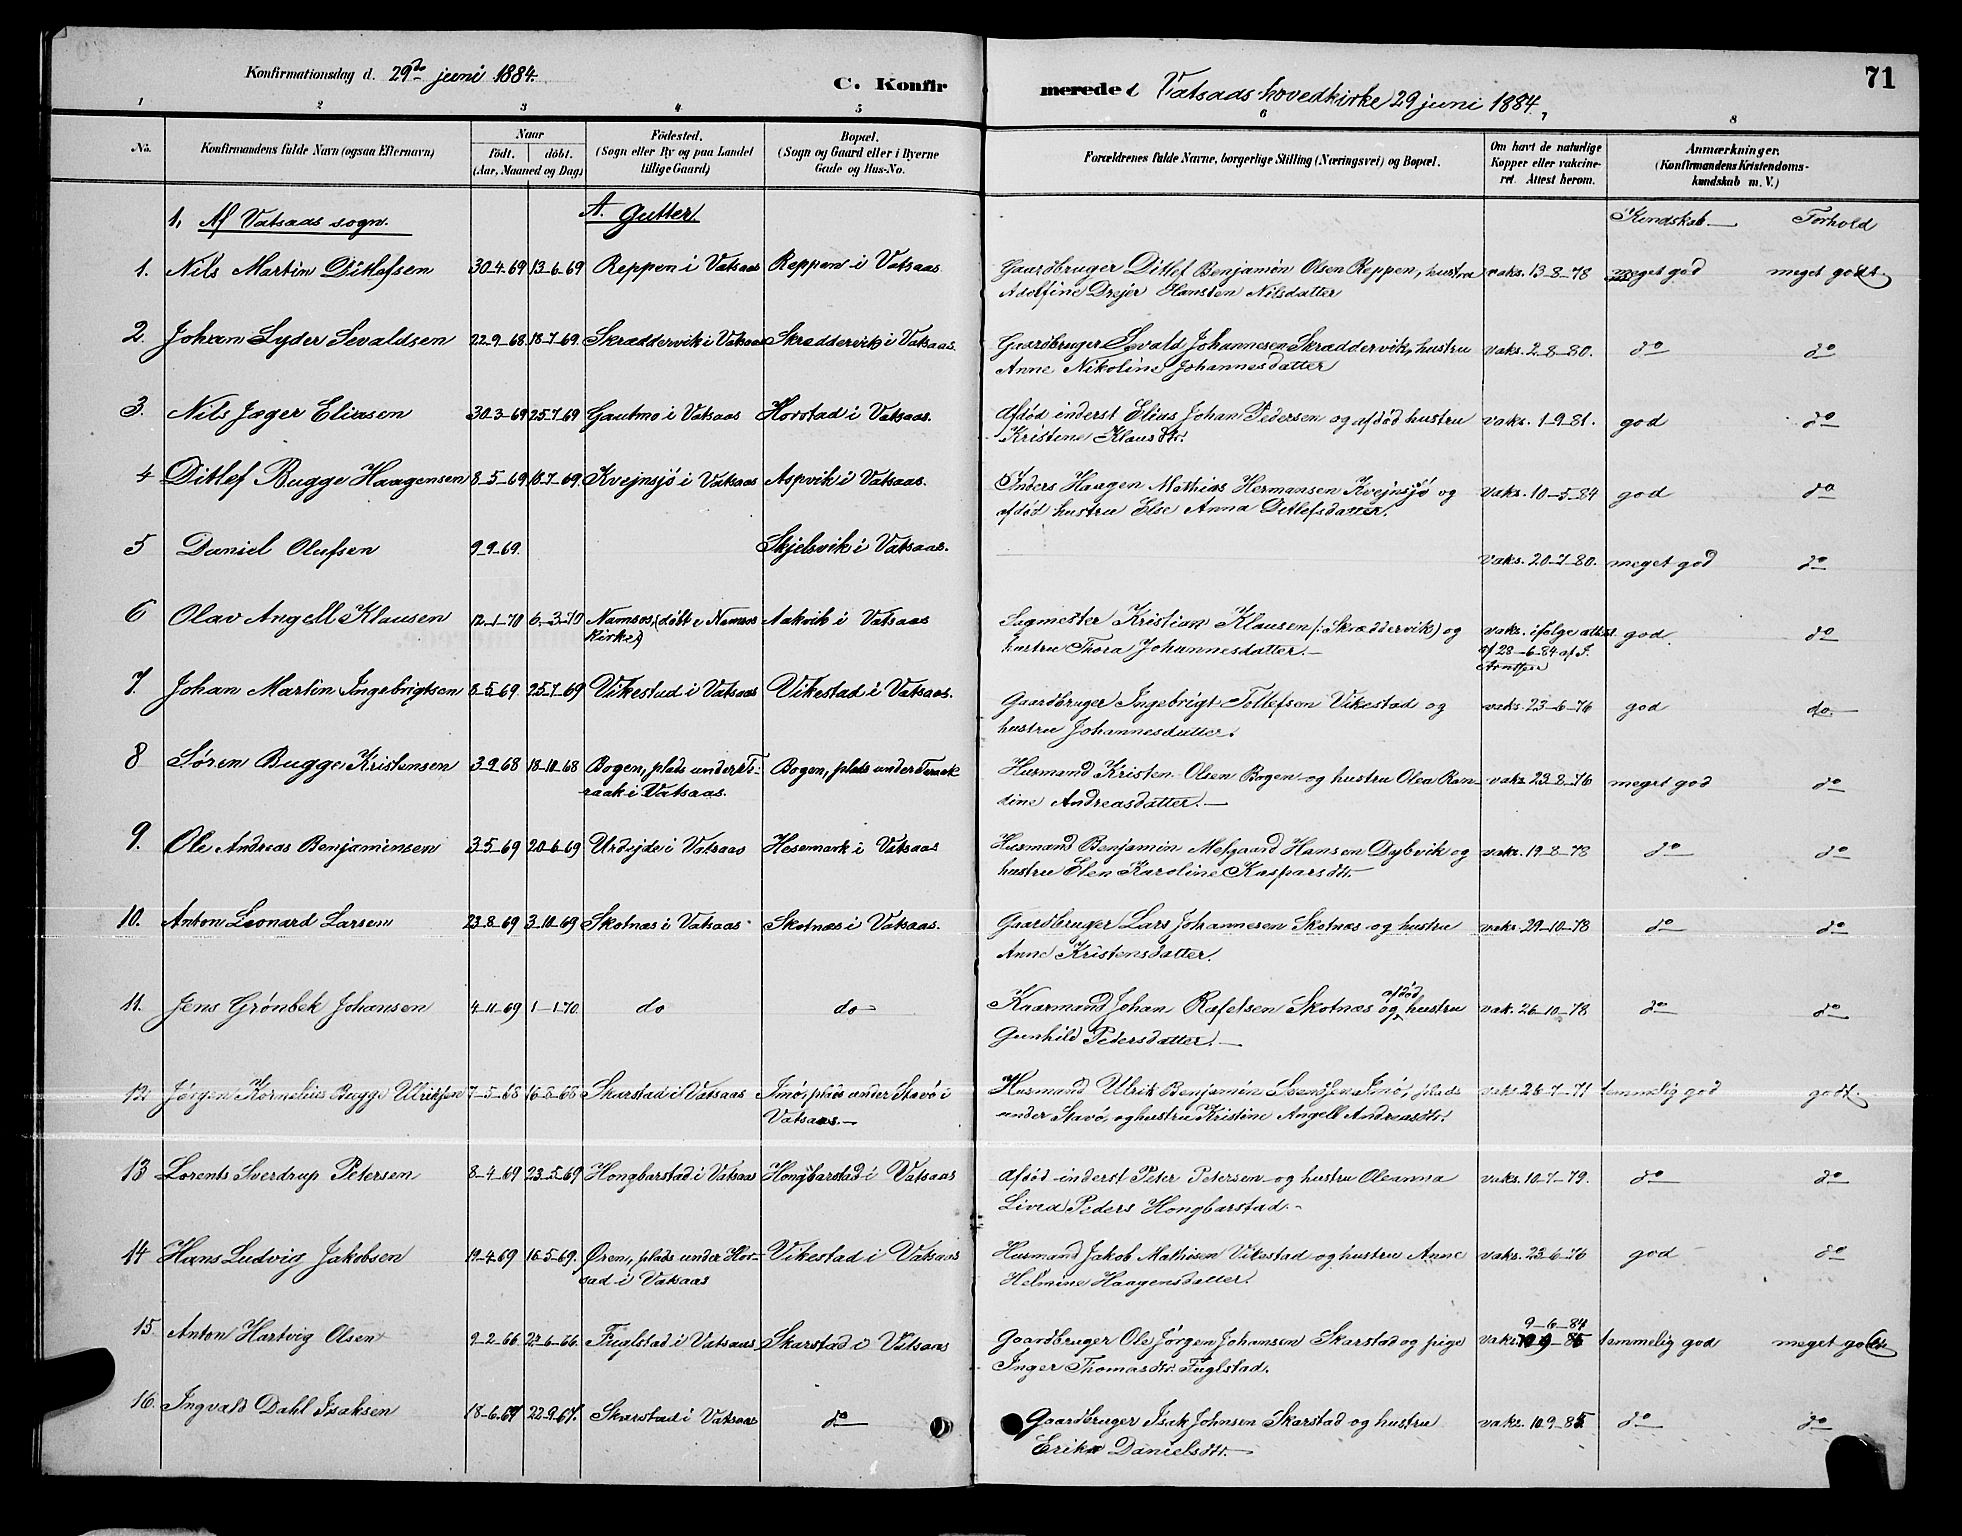 Konfirmationsdag d. 29de juni 1884. C. Konfirmerede i Vatsaas hovedkirke 29 juni 1884. 71
1 2 3 4 5 6 8
No. Konfirmandens fulde Navn (ogsaa Efternavn) Naar födt. döbt. (Aar, Maaned og Dag) Födested. (Sogn eller By og paa Landet tillige Gaard) Bopæl. (Sogn og Gaard eller i Byerne Gade og Hus-No. Forældrenes fulde Navne, borgerlige Stilling (Næringsvei) og Bopæl. Om havt de naturlige Kopper eller vakcineret. Attest herom. Anmærkninger. (Konfirmandens Kristendomskundskab m. V.)
1. Af Vatsaas sogn. A. Gutter. Kundskab Forhold
1. Nils Martin Ditlefsen 30-4-69 13-6-69 Reppen i Vatsaas Reppen i Vatsaas Gaardbruger Ditlef Benjamin Olsen Reppen, hustru vaks. 13-8-78 meget god meget godt.
Adelfine Drejer Hansten Nilsdatter
2. Johan Lyder Sevaldsen 22-9-68 18-7-69. Skræddervik i Vatsaas Skræddervik i Vatsaas. Gaardbruger Sevald Johannesen Skræddervik, hustru vaks. 2-8-80. do do
Anne Nikoline Johannesdatter
3. Nils Jæger Eliasen 30-3-69 25-7-69 Gautmo i Vatsaas Horstad i Vatsaas. Afdöd inderst Elias Johan Pedersen og afdöd hustru vaks. 1-9-81. god do
Kristine Klausdtr.
4 Ditlef Bugge Haagensen 8-5-69 18-7-69. Kvejnsjö i Vatsaas Aspvik i Vatsaas. Inders Haagen Mathias Hermansen Kvejnsjö og vaks. 10-5-84 god do
afdöd hustru Else Anna Ditlefsdatter.
5 Daniel Olufsen 9-9-69. Skjelsvik i Vatsaas. vaks. 20-7-80. meget god do
6 Olav Angell Klausen 12-1-70 6-3-70 Namsos, (döbt i Namsos Aakvik i Vatsaas Sagmester Kristian Klausen (: Skræddervik) og vaks. ifølge attest god. do
kirke) hustru Thora Johannesdatter. af 28-6-84 af
7. Johan Martin Ingebrigtsen 8-5-69 25-7-69 Vikestad i Vatsaas Vikestad i Vatsaas. Gaardbruger Ingebrigt Tollefsen Vikestad og vaks. 23-6-76 god do.
hustru Johannesdatter.
8 Søren Bugge Kristensen 3-9-68 18-10-68 Bogen, plads under Te- Bogen, plads under Teraak Husmand Kristen Olsen Bogen og hustru Olea Ran- vaks 23-8-76 meget god do
raak i Vatsaas. dine Andreasdatter.
9. Ole Andreas Benjaminsen 3-5-69 20-6-69 Urdsjde i Vatsaas Hesemark i Vatsaas Husmand Benjamin Mefgaard Hansen Dybvik og vaks. 19-8-78 do do
hustru Elen Karoline Kaspersdtr.
10. Anton Leonard Larsen 23-8-69 3-10-69 Skotnæs i Vatsaas Skotnæs i Vatsaas. Gaardbruger Lars Johannesen Skotnæs og hustru vaks. 29-10-78 do do
Anne Kristensdatter.
11. Jens Grönbek Johansen 4-11-69 1-1-70. do do Kaarmand Johan Rafelsen Skotnæs og afdöd hustru vak. 26-10-78 do do
Gunhild Pedersdatter.
12. Jørgen Kornelius Bugge Ulriksen 7-5-68 16-8-68 Skarstad i Vatsaas Imö, plads under Stavö i Husmand Ulrik Benjamin Svendsen Imö, plads vaks 28-7-71 temmelig god godt.
Vatsaas. under Stavö, og hustru Kristine Angell Andreasdtr.
13 Lorents Sverdrup Petersen 8-4-69 23-5-69 Hongbarstad i Vatsaas Hongbarstad i Vatsaas Afdöd inderst Peter Petersen og hustru Oleanna vaks. 10-7-79. do do
Livia Peders Hongbarstad.
14 Hans Ludvig Jakobsen 19-4-69 16-5-69. Øren, plads under Hor- Vikestad i Vatsaas Husmand Jakob Mathisen Vikestad og hustru Anne vaks. 23-6-76 god do
sad i Vatsaas Helmine Haagensdatter.
15. Anton Hartvig Olsen 9-2-66 24-6-66. Fuglstad i Vatsaas Skarstad i Vatsaas Gaardbruger Ole Jørgen Johansen Skarstad og pige 9-6-84 vaks. 10-9-85 temmelig god meget godt
Inger Thomasdtr. Fuglstad.
16. Ingvald Dahl Isaksen 18-6-67 22-9-67. Skarstad i Vatsaas do Gaardbruger Isak Johnsen Skarstad og hustru vaks. 10.9-85. do do
Erika Danielsdtr.